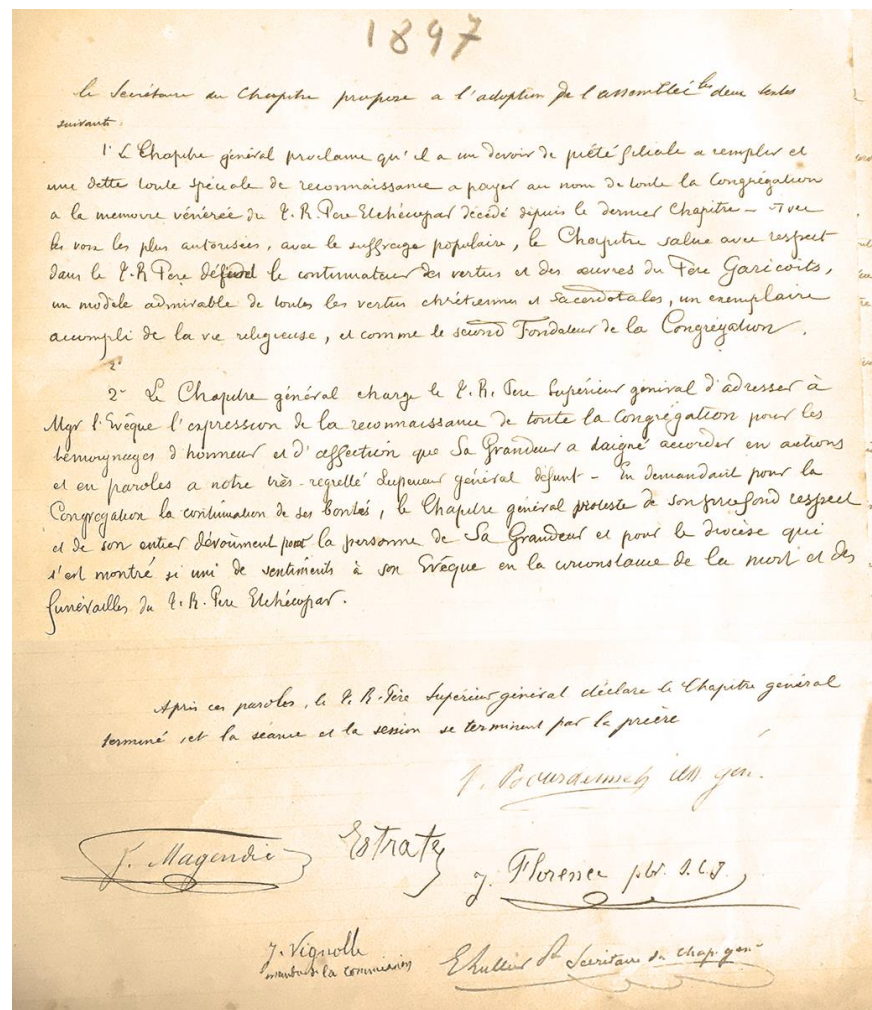 1897
le Secrétaire du Chapitre propose a l'adoption de l'assemblée les deux textes
suivants.
1° Le Chapitre général proclame qu'il a un devoir de piété filiale a remplir et
une dette toute spéciale de reconnaissance a payer au nom de toute la Congrégation
a la memoire vénérée du T. R. Pere Etchécopar décédé depuis le dernier Chapitre – Avec
les voix les plus autorisées, avec le suffrage populaire, le Chapitre salue avec respect
dans le T. R Pere défunt le continuateur des vertus et des œuvres du Père Garicoïts,
un modèle admirable de toutes les vertus chrétiennes et Sacerdotales, un exemplaire
accompli de la vie religieuse, et comme le second Fondateur de la Congrégation.
2°
2° Le Chapitre général charge le T. R. Pere Supérieur général d'adresser à
Mgr l'Evêque l'expression de la reconnaissance de toute la Congrégation pour les
témoignages d'honneur et d'affection que Sa Grandeur a daigné accorder en actions
et en paroles a notre très-regretté Supérieur général défunt – En demandant pour la
Congregation la continuation de ses bontés, le Chapitre général proteste de son profond respect
et de son entier dévoûment pour la personne de Sa Grandeur et pour le diocèse qui
s'est montré si uni de sentiments à son Evêque en la circonstance de la mort et des
funérailles du T. R. Pere Etchécopar.
Après ces paroles, le T. R. Père Supérieur général déclare le Chapitre général
terminé, et la séance et la session se terminent par la prière
P. Bourdenne ass gén.
P. Magendie
Estrate
J. Florence pbr. S.C.J.
J. Vignolle
membre de la commission
Secrétaire du Chap. gén